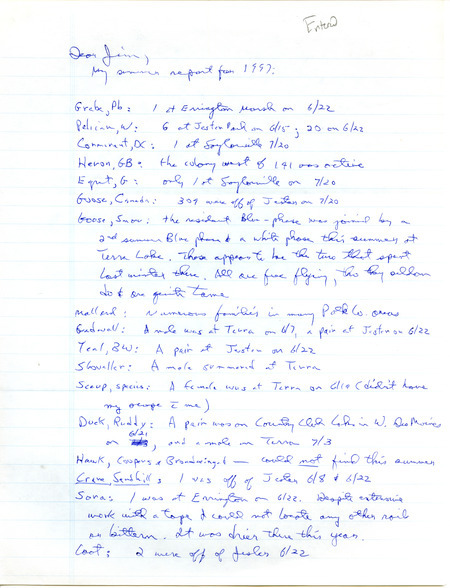 Entered
Dear Jim,
My summer report for 1997:
Grebe, Pb: 1 at Errington Marsh on 6/22
Pelican, W: 6 at Jester Park on 6/15; 20 on 6/22
Cormorant, DC: 1 at Saylorville 7/20
Heron, GB: the colony west of 141 was active
Egret, G: only 1 at Saylorville on 7/20
Goose, Canada: 309 were off of Jester on 7/20
Goose, Snow: the resident Blue-phase was joined by a
2nd summer Blue phase & a white phase this summer at
Terra Lake. These appear to be the two that spent
last winter there. All are free flying, tho they seldom
do & are quite tame
Mallard: Numerous families in many Polk Co. areas
Gadwall: A male was at Terra on 6/7, a pair at Jester on 6/22
Teal, BW: A pair at Jester on 6/22
Shoveller: A male summered at Terra
Scaup, species: A female was at Terra on 6/19 (didn't have
my scope c me)
Duck, Ruddy: A pair was on Country Club Lake in W. Des Moines
on 6/21, and a male on Terra 7/3
Hawk, Coopers & Broadwinged — could not find this summer
Crane, Sandhill: 1 was off of Jester 6/8 & 6/22
Sora: 1 was at Errington on 6/22. Despite extensive
work with a tape I could not locate any other rails
or bittern. It was drier there this year.
Coot: 2 were off of Jester 6/22